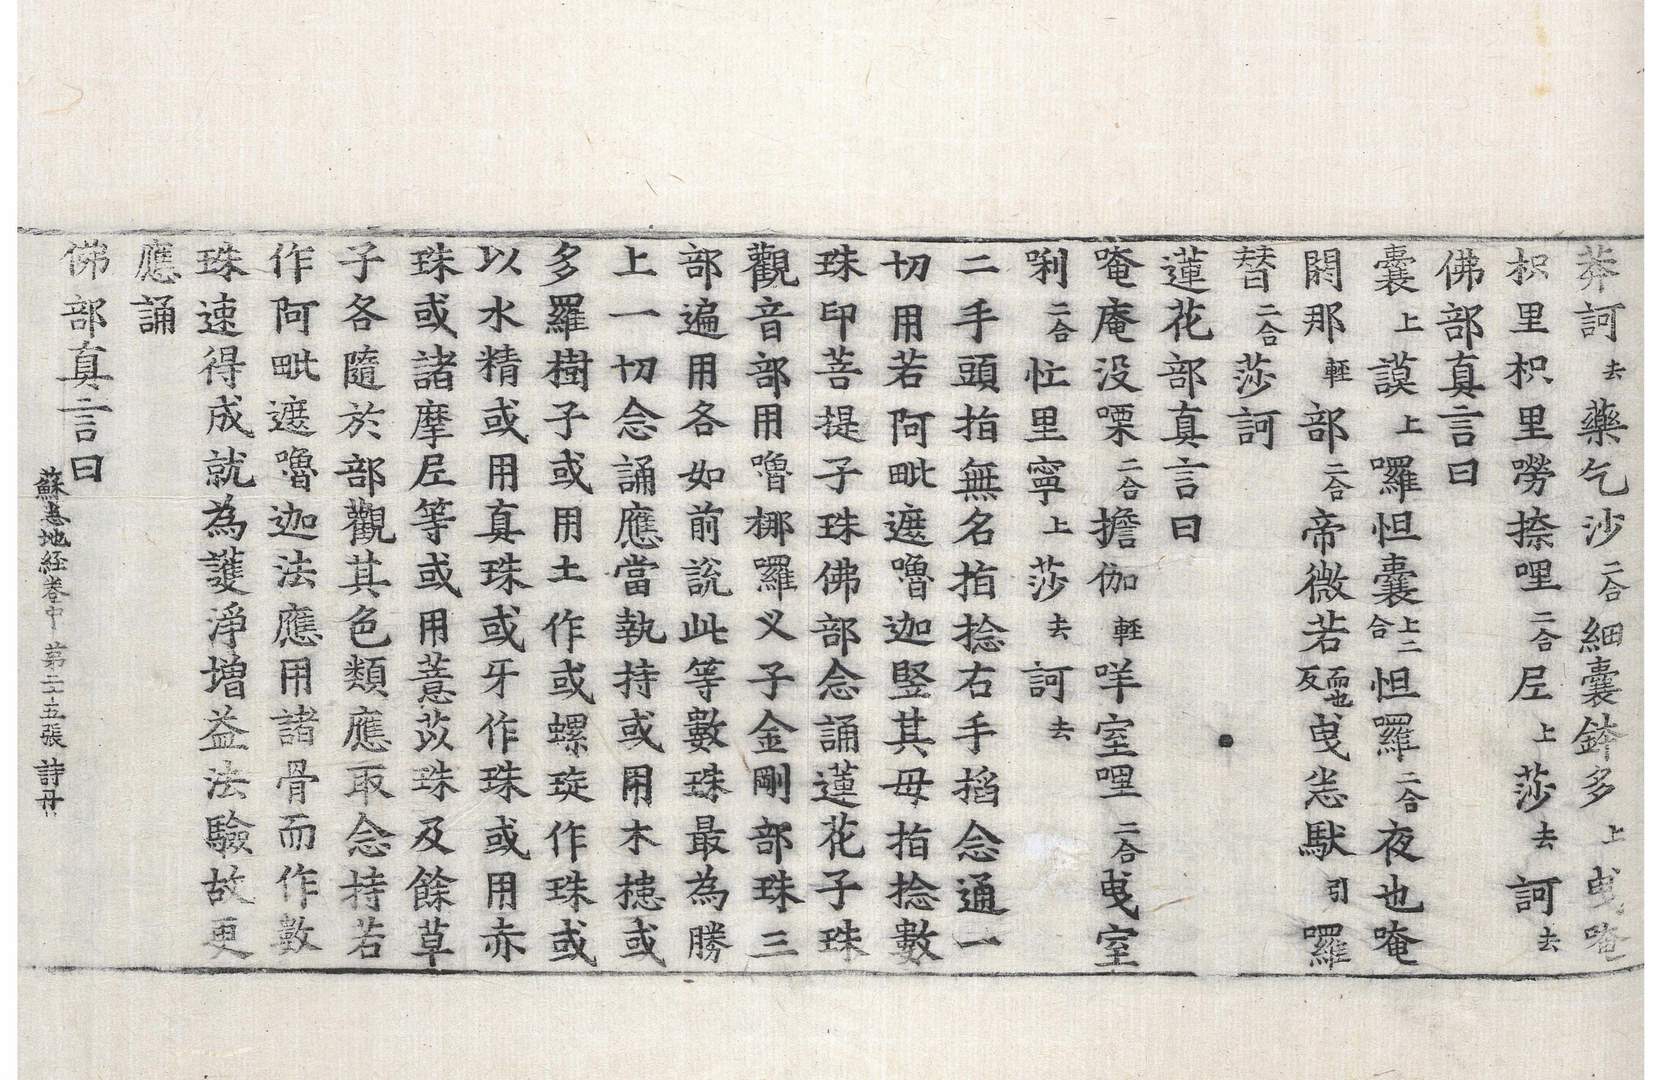 莽訶去藥乞沙二合細囊鉢多上曳唵
枳里枳里嘮捺哩二合𡰱上莎去訶去
佛部真言曰
囊上謨上囉怛囊上二合怛羅二合夜也唵
閼那輕部二合帝微若而也反曳悉馱引囉
替二合莎訶
蓮花部真言曰
唵庵没㗚二合擔伽輕咩室哩二合曳室
唎二合忙里寧上莎去訶去
二手頭指無名指捻右手搯念通一
切用若阿毗遮嚕迦竪其母指捻數
珠印菩提子珠佛部念誦蓮花子珠
觀音部用嚕梛囉义子金剛部珠三
部遍用各如前說此等數珠最為勝
上一切念誦應當執持或用木槵或
多羅樹子或用土作或螺琁作珠或
以水精或用真珠或牙作珠或用赤
珠或諸摩𡰱等或用薏苡珠及餘草
子各隨於部觀其色類應取念持若
作阿毗遮嚕迦法應用諸骨而作數
珠速得成就為護淨增益法驗故更
應誦
佛部真言曰
蘇悉地経卷中 第二十五張 詩丹